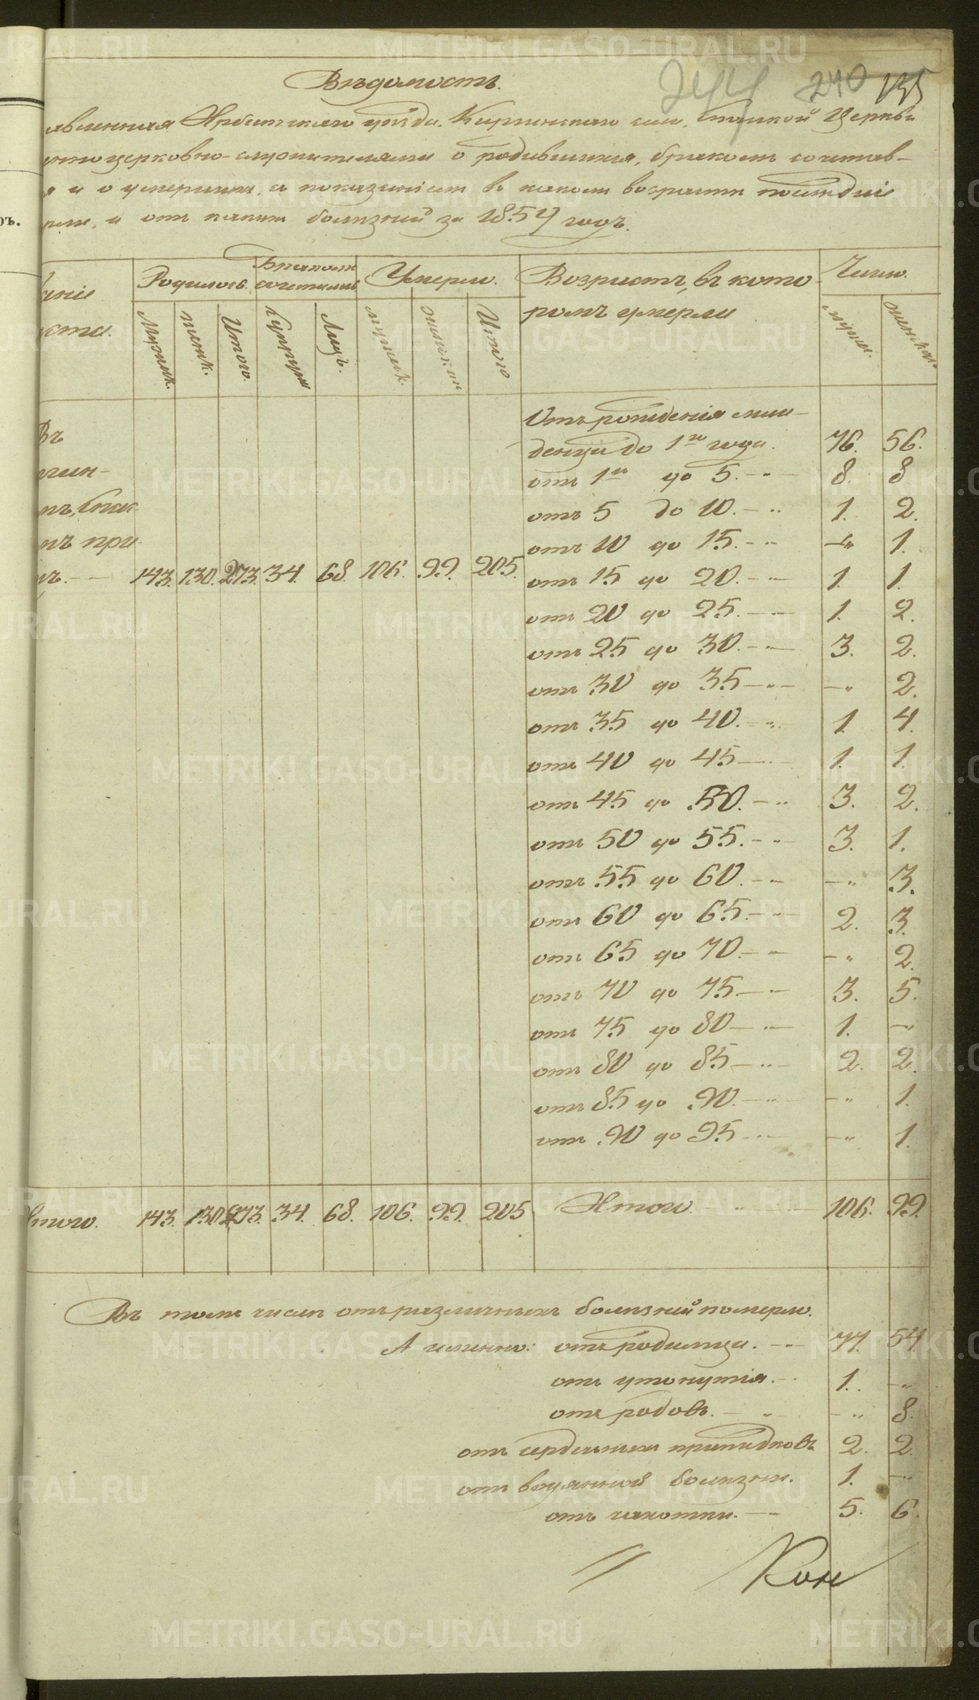 244 240 135
Вѣдомость.
явленная Ирбитскаго уѣзда, Киргинскаго села, Спасской Церкви
церковно-служителями о родившихся, бракомъ сочетав-
и о умершихъ, съ показаніемъ въ какомъ возрастѣ послѣдніе
и отъ какихъ болѣзней за 1854 годъ.
Родилось Бракомъ сочетались Умерло. Возрастъ, въ кото- Число.
ромъ умерли
Мужск. женск. Итого. Супруж. Лицъ. мужск. женскихъ Итого мужск. женскихъ
Отъ рожденія мла-
Въ денца до 1го года. 76. 56.
отъ 1го до 5. - „ 8. 8
отъ 5 до 10. - „ 1. 2.
при отъ 10 до 15. - „ - „ 1.
143. 130. 273. 34. 68. 106. 99. 205. отъ 15 до 20. - „ 1. 1.
отъ 20 до 25. - „ 1. 2.
отъ 25 до 30. - „ 3. 2.
отъ 30 до 35 - „ - - „ 2.
отъ 35 до 40. - „ 1. 4.
отъ 40 до 45 - „ 1. 1.
отъ 45 до 50. - „ 3. 2.
отъ 50 до 55. - „ 3. 1.
отъ 55 до 60. - „ - „ 3.
отъ 60 до 65. - „ 2. 3.
отъ 65 до 70 - „ - „ 2.
отъ 70 до 75. - „ 3. 5.
отъ 75 до 80 - „ 1. - „
отъ 80 до 85 - „ 2. 2.
отъ 85 до 90. - „ - „ 1.
отъ 90 до 95 - „ - „ 1.
Итого. 143. 130. 273. 34. 68. 106. 99. 205 Итого 106. 99.
Въ томъ числѣ отъ различныхъ болѣзней померло.
А именно: отъ родимца. - „ 77. 54
отъ утонутія. - 1. - „
отъ родовъ. - „ - „ 8.
отъ сердечныхъ припадковъ 2. 2
отъ водяной болѣзни. 1. - „
отъ чахотки. - „ 5. 6.
Кон
METRIKI.GASO-URAL.RU